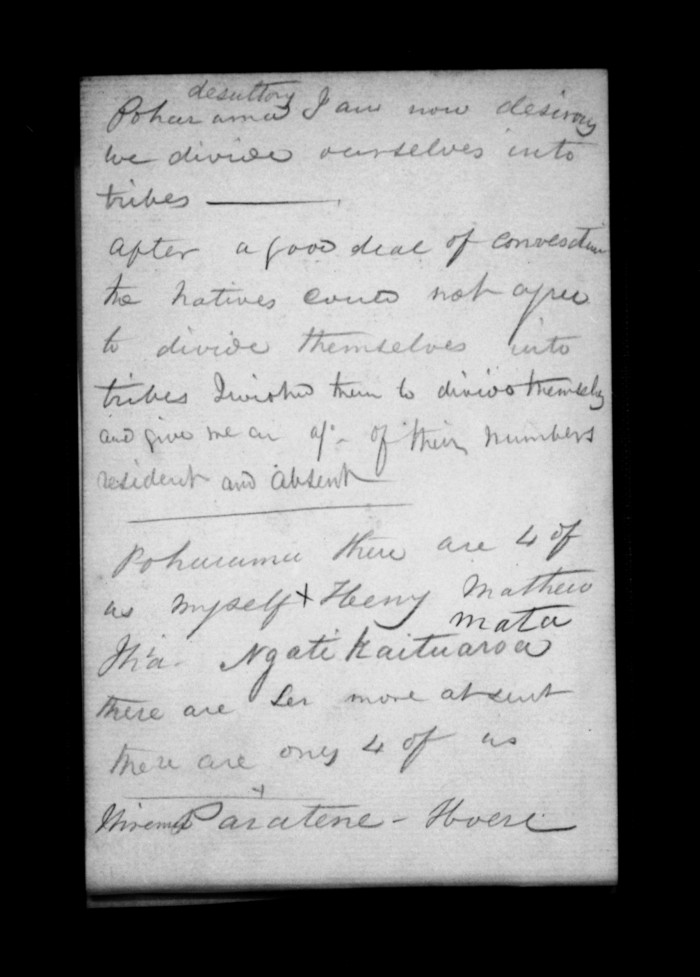 desultory
Poharama I am now desirous
we divide ourselves into
tribes
After a good deal of convesation
the natives could not agree
to divide themselves into
tribes I wished them to divide themselves
and give me an a/c of their numbers
resident and absent
Poharama there are 4 of
us myself + Henry Mathew
mata
Ngati Kaituaroa
there are more absent
there are only 4 of us
+
Wiremu Paratene - Hoera